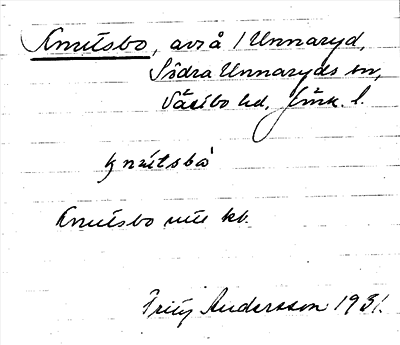 Knutsbo, avs å 1 Unnaryd,
Södra Unnaryds sn,
Västbo hd, Jönk. l.
knu̇tsbo
Knutsbo utt. kb.
Fritz Andersson 1931.